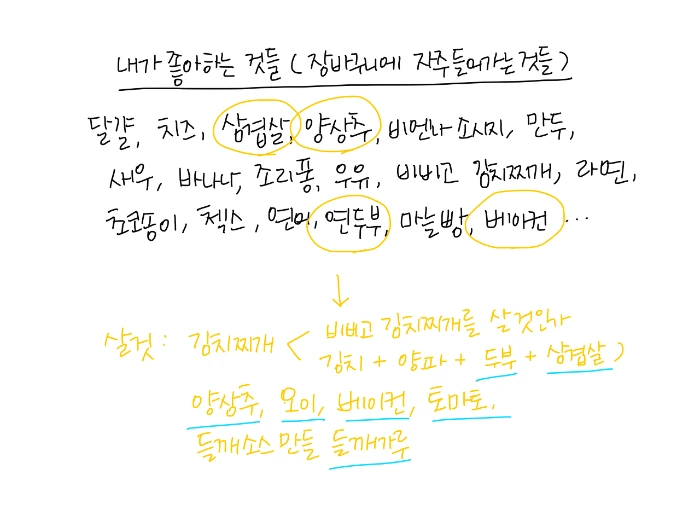 내가 좋아하는 것들 (장바구니에 자주들어가는것들)
달걀, 치즈, 삼겹살, 양상추, 비엔나 소시지, 만두,
새우, 바나나, 조리퐁, 우유, 비비고 김치찌개, 라면,
초코송이, 첵스, 연어, 연두부, 마늘빵, 베이컨 ...
살것: 김치찌개 < 비비고 김치찌개를 살것인가
김치 + 양파 + 두부 + 삼겹살)
양상추, 오이, 베이컨, 토마토,
들깨소스만들 들깨가루